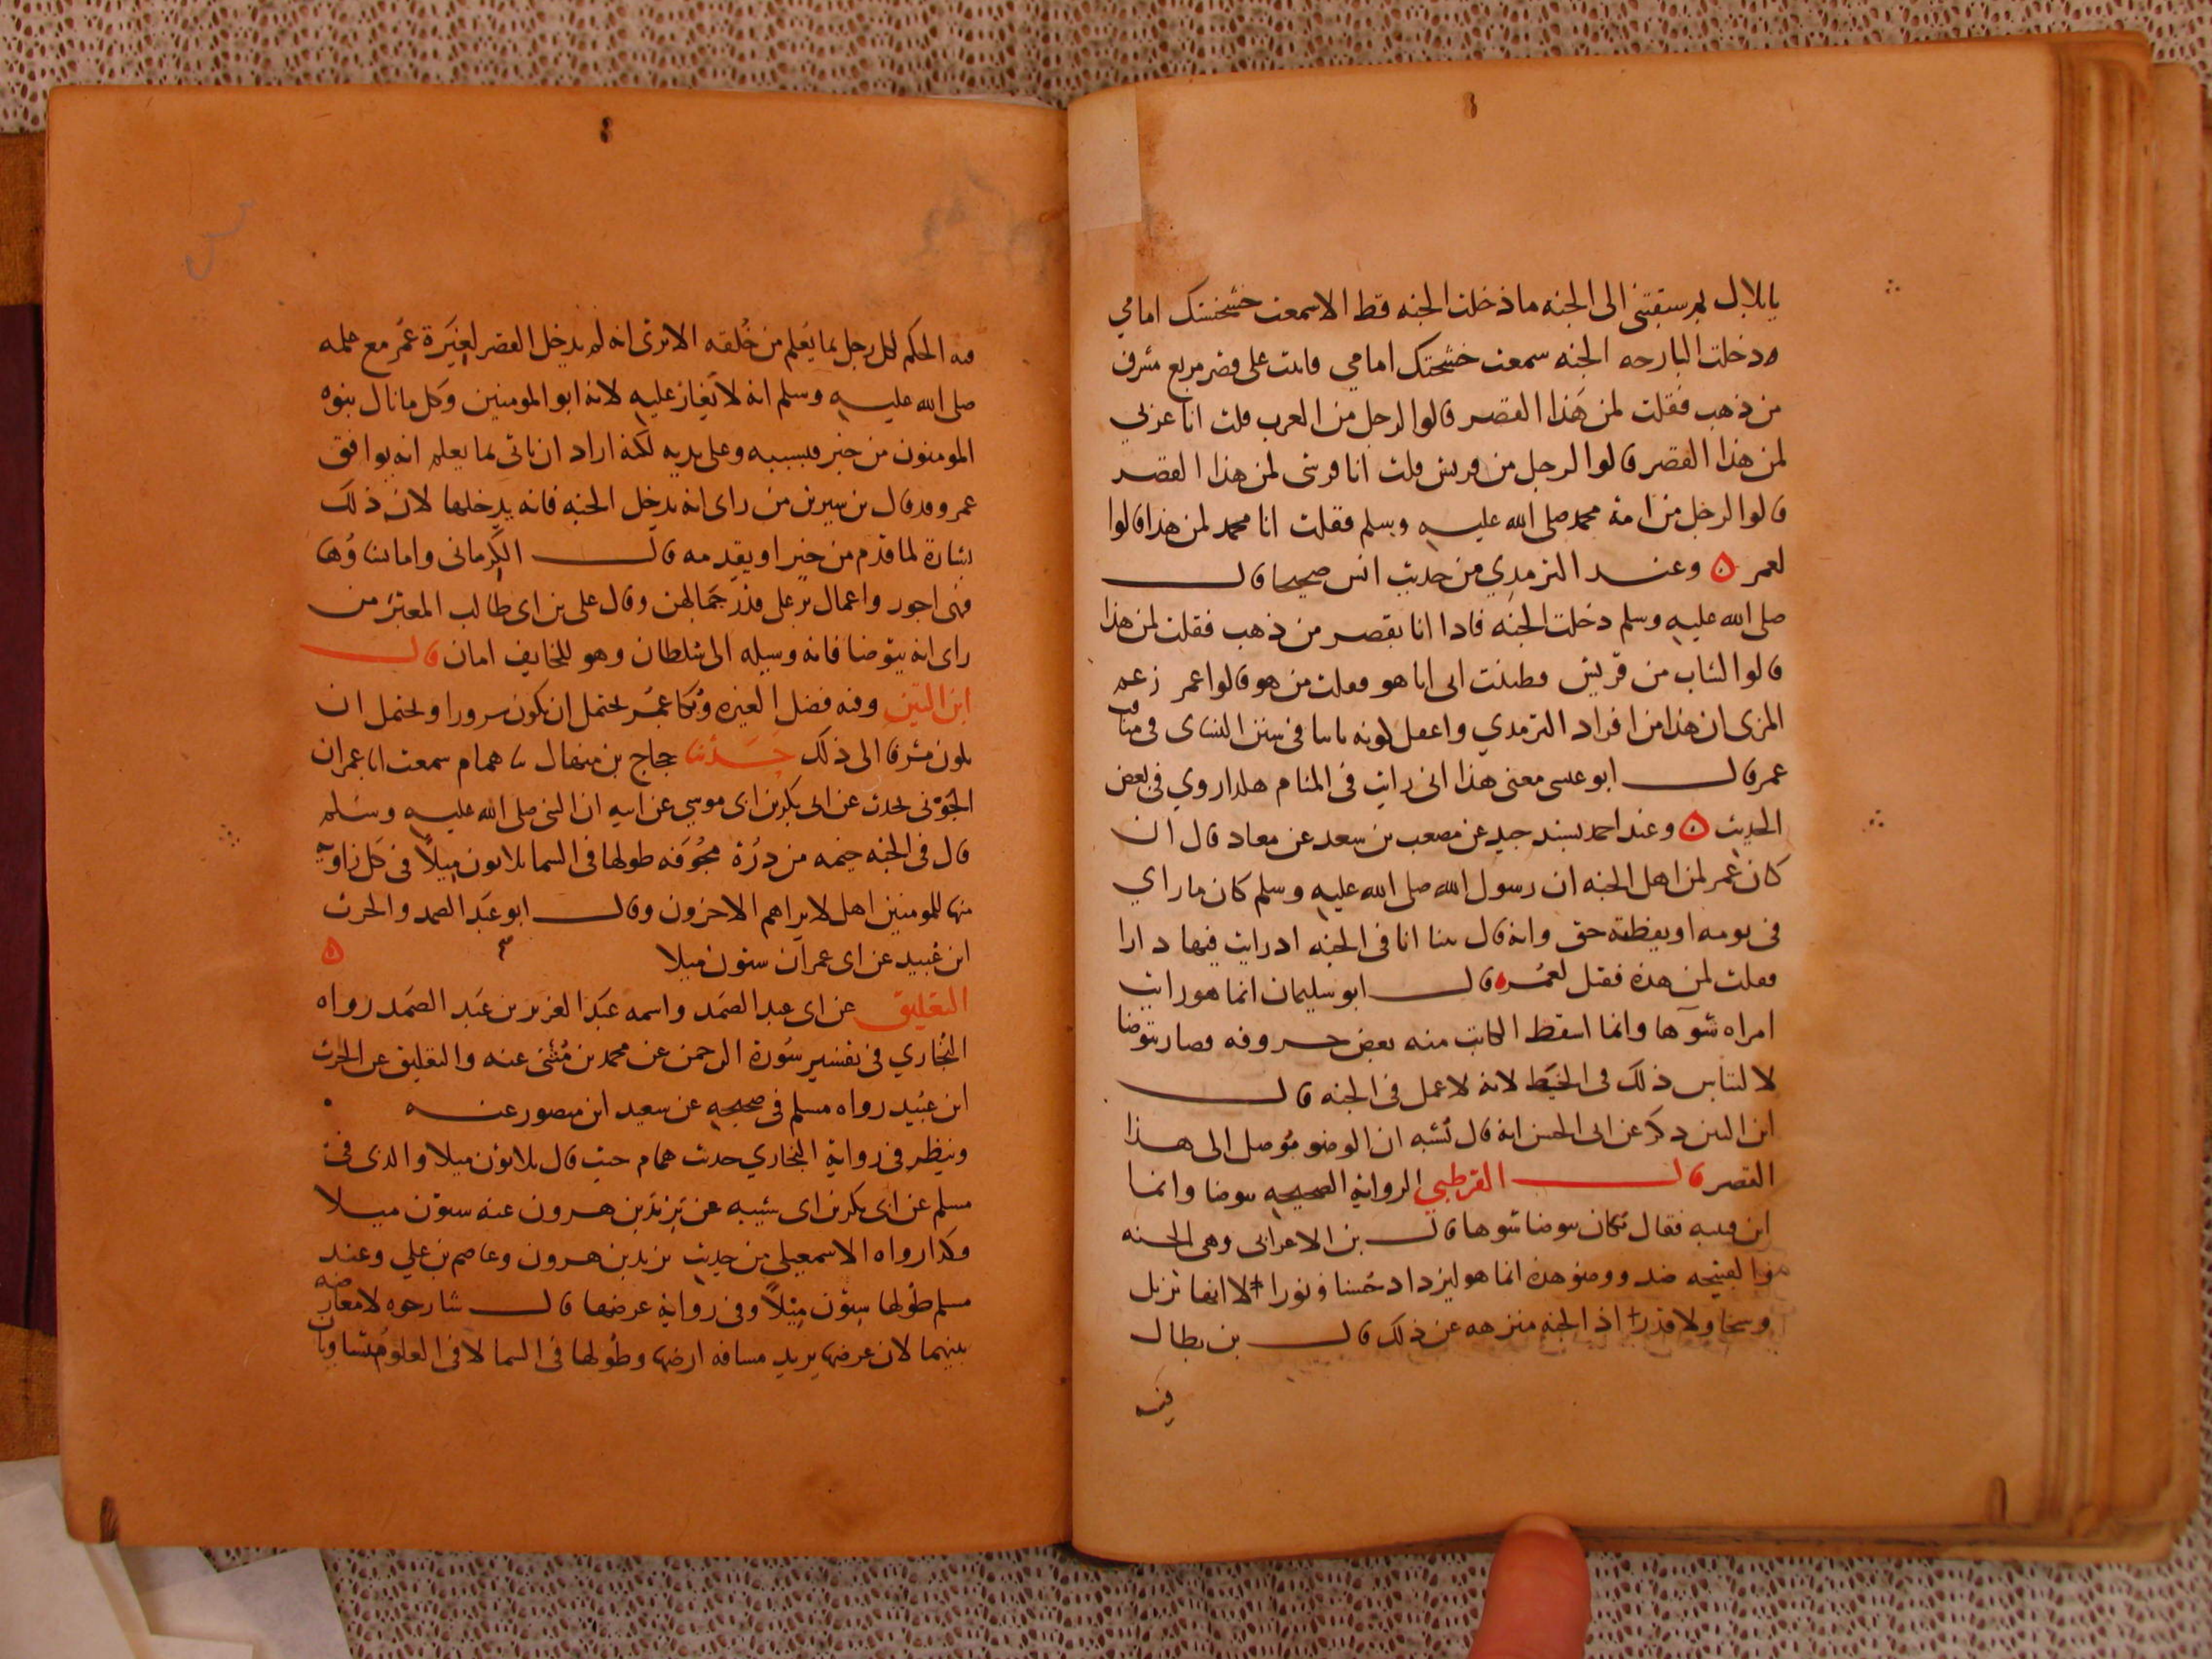 يا بلال بم سبقتني الى الجنه ما دخلت الجنه قط الا سمعت خشخشتك امامي
ودخلت البارحه الجنه سمعت خشخشتك امامي فاتيت على قصر مربع مشرف
من ذهب فقلت لمن هذا القصر قالوا لرجل من العرب قلت انا عربي
لمن هذا القصر قالوا لرجل من قريش قلت انا قرشي لمن هذا القصر
قالوا لرجل من امة محمد صلى الله عليه وسلم فقلت انا محمد لمن هذا قالوا
لعمر ن وعند الترمدي من حديث انس صحيحا قال
صلى الله عليه وسلم دخلت الجنه فادا انا بقصر من ذهب فقلت لمن هذا
قالوا لشاب من قريش فظننت انى انا هو فقلت من هو قالوا عمر زعم
المزى ان هذا من افراد الترمدي واغفل كونه ثابتا في سنن النساى في مناقب
عمر قال ابو عيسى معنى هذا انى رايت في المنام هكدا روي في بعض
الحديث ن وعند احمد بسند جيد عن مصعب بن سعد عن معاد قال ان
كان عمر لمن اهل الجنه ان رسول الله صلى الله عليه وسلم كان ما راي
في نومه او يقظته حق وانه قال بينا انا في الجنه اد رايت فيها دارا
فقلت لمن هذه فقيل لعمر ه قال ابو سليمان انما هو رايت
امراه شوها وانما اسقط الكاتب منه بعض حروفه فصار تتوضا
لالتباس ذلك في الخط لانه لا عمل في الجنه قال
ابن التين دكر عن ابى الحسن انه قال يشبه ان الوضو موصل الى هذا
القصر قال القرطبي الرواية الصحيحه تتوضا وانما
ابن قتيبه فقال مكان تتوضا شوها قال بن الاعرابى وهى الحسنه
والقبيحه ضد ووضو هذه انما هو ليزداد حسنا ونورا لا انها تزيل
وسخا ولا قذرا اذ الجنه منزهه عن ذلك قال بن بطال
فيه
فيه الحكم لكل رجل بما يعلم من خلقه الا ترى انه لم يدخل القصر لغيرة عمر مع علمه
صلى الله عليه وسلم انه لا يغار عليه لانه ابو المومنين وكل ما نال بنوه
المومنون من خير فبسببه وعلى يديه لكنه اراد ان ياتي بما يعلم انه يوافق
عمر وقد قال بن سيرين من راى انه يدخل الجنه فانه يدخلها لان ذلك
بشارة لما قدم من خير او يقدمه قال الكرمانى واما بناوها
فهى اجور واعمال بر على قدر جمالهن وقال على بن ابى طالب المعتبر من
راى انه يتوضا فانه وسيله الى سلطان وهو للخايف امان قال
ابن التين وفيه فضل الغيره وبكا عمر يحتمل ان يكون سرورا ويحتمل ان
يكون شوقا الى ذلك حدثنا حجاج بن منهال ثنا همام سمعت ابا عمران
الجونى يحدث عن ابى بكر بن ابى موسى عن ابيه ان النبي صلى الله عليه وسلم
قال في الجنه خيمه من درة مجوفه طولها في السما ثلاثون ميلا في كل زاويه
منها للمومنين اهل لا يراهم الاخرون وقال ابو عبد الصمد والحرث
ابن عبيد عن ابى عمران ستون ميلا ن
التعليق عن ابى عبد الصمد واسمه عبد العزيز بن عبد الصمد رواه
البخاري في تفسير سورة الرحمن عن محمد بن مثنى عنه والتعليق عن الحرث
ابن عبيد رواه مسلم في صحيحه عن سعيد ابن منصور عنه
وينظر في رواية البخاري حديث همام حيث قال ثلاثون ميلا والذى في
مسلم عن ابى بكر بن ابى شيبه عن يزيد بن هرون عنه ستون ميلا
وكذا رواه الاسمعيلى من حديث يزيد بن هرون وعاصم بن علي وعند
مسلم طولها ستون ميلا وفي رواية عرضها قال شارحوه لا معارضه
بينهما لان عرضها يريد مسافه ارضها وطولها في السما لا في العلو متساويان